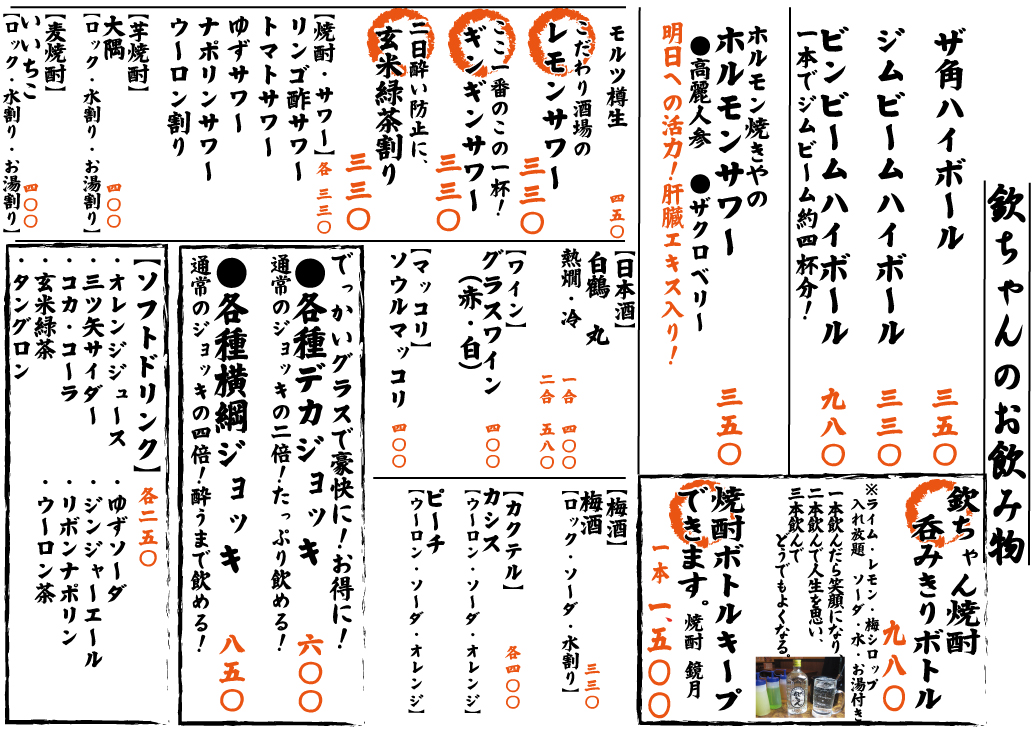 欽ちゃんのお飲み物
ザ角ハイボール 三五〇
ジムビームハイボール 三三〇
ビンビームハイボール 九八〇
一本でジムビーム約四杯分!
ホルモン焼きやの
ホルモンサワー 三五〇
●高麗人参 ●ザクロベリー
明日への活力!肝臓エキス入り!
モルツ樽生 四五〇
こだわり酒場の
レモンサワー 三三〇
ここ一番のこの一杯!
ギンギンサワー 三三〇
二日酔い防止に、
玄米緑茶割り 三三〇
【焼酎・サワー】各 三三〇
リンゴ酢サワー
トマトサワー
ゆずサワー
ナポリンサワー
ウーロン割り
【芋焼酎】
大隅 四〇〇
【ロック・水割り・お湯割り】
【麦焼酎】
いいちこ 四〇〇
【ロック・水割り・お湯割り】
【日本酒】
白鶴 丸
熱燗・冷
一合 四〇〇
二合 五八〇
【ワイン】
グラスワイン 四〇〇
(赤・白)
【マッコリ】
ソウルマッコリ 四〇〇
【梅酒】
梅酒 三三〇
【ロック・ソーダ・水割り】
【カクテル】 各四〇〇
カシス
【ウーロン・ソーダ・オレンジ】
ピーチ
【ウーロン・ソーダ・オレンジ】
でっかいグラスで豪快に!お得に!
●各種デカジョッキ 六〇〇
通常のジョッキの二倍!たっぷり飲める!
●各種横綱ジョッキ 八五〇
通常のジョッキの四倍!酔うまで飲める!
【ソフトドリンク】 各二五〇
・オレンジジュース ・ゆずソーダ
・三ツ矢サイダー ・ジンジャーエール
・コカ・コーラ ・リボンナポリン
・玄米緑茶 ・ウーロン茶
・タングロン
欽ちゃん焼酎
呑みきりボトル
九八〇
※ライム・レモン・梅シロップ
入れ放題 ソーダ・水・お湯付き
一本飲んだら笑顔になり
二本飲んで人生を思い、
三本飲んで
どうでもよくなる。
焼酎ボトルキープ
できます。焼酎 鏡月
一本 一、五〇〇